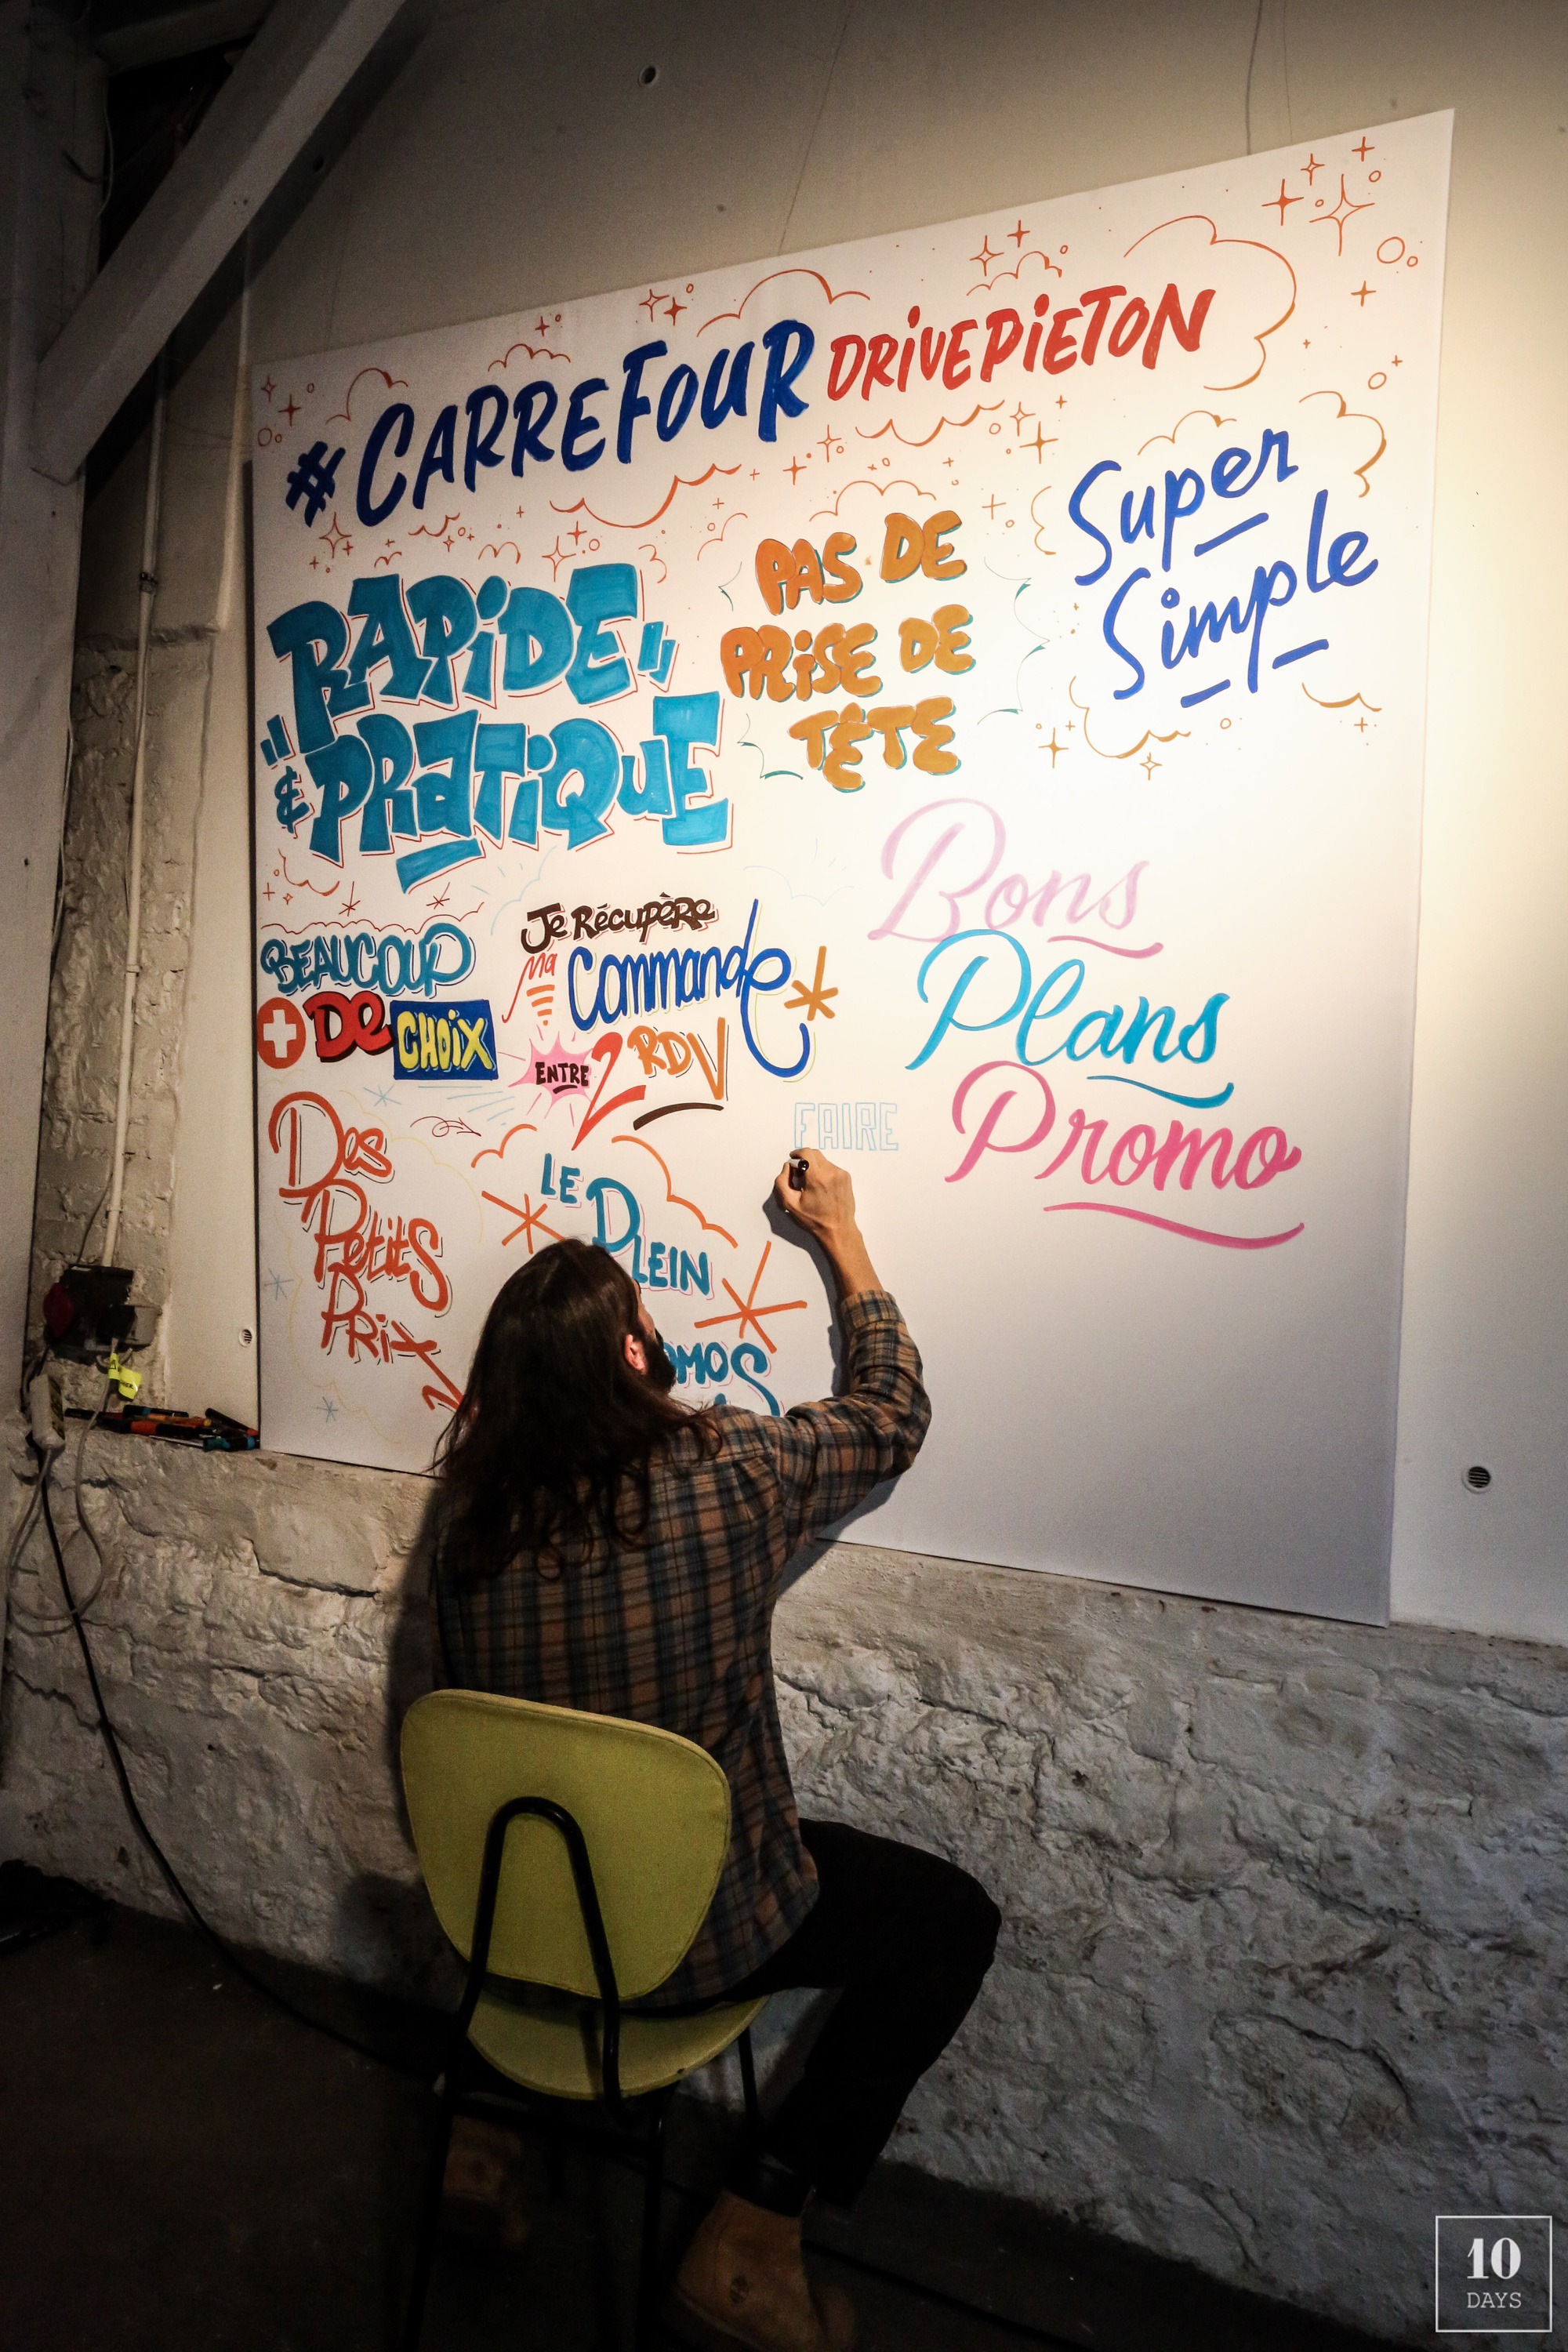 #CARREFOUR DRIVEPIETON
RAPIDE
& PRATIQUE
PAS DE
PRISE DE
TÊTE
Super
Simple
BEAUCOUP
+ DE CHOIX
Je Récupère
Ma Commande
ENTRE 2 RDV
Bons
Plans
Promo
FAIRE
Des
Petits
Prix
LE PLEIN
10
DAYS